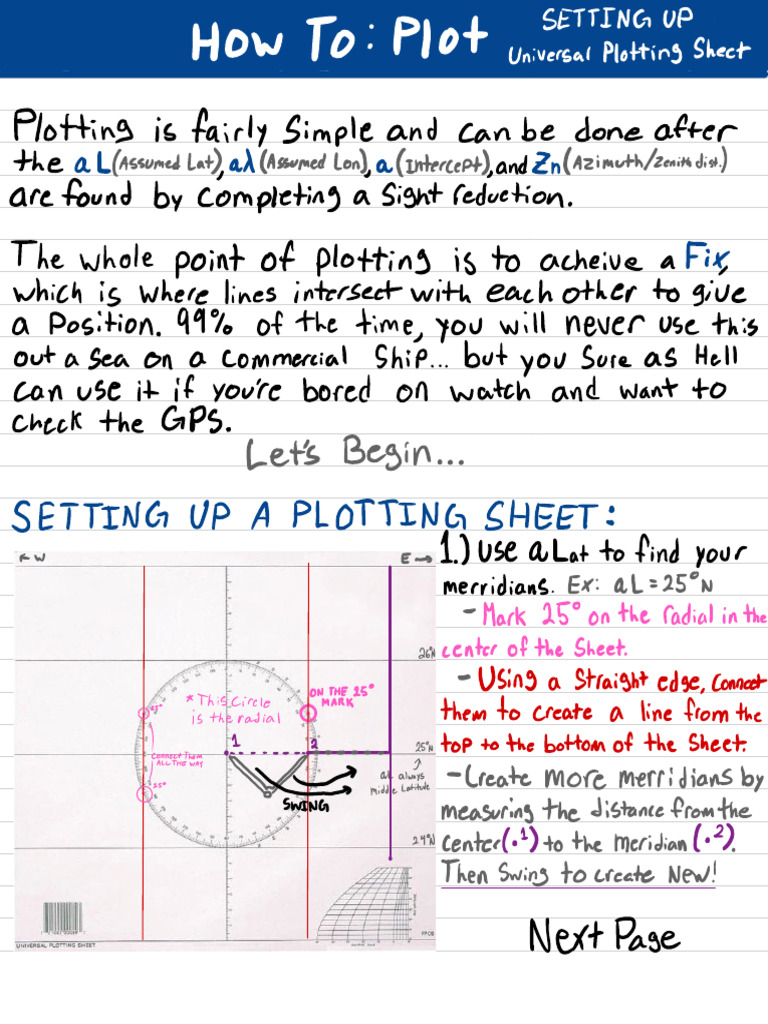 How To: Plot
SETTING UP
Universal Plotting Sheet
Plotting is fairly Simple and can be done after
the aL (Assumed Lat), aλ (Assumed Lon), a (Intercept), and Zn (Azimuth/Zenith dist.)
are found by completing a Sight reduction.
The whole point of plotting is to acheive a Fix,
which is where lines intersect with each other to give
a Position. 99% of the time, you will never use this
out a sea on a commercial Ship... but you Sure as Hell
can use it if you're bored on watch and want to
check the GPS.
Let's Begin...
SETTING UP A PLOTTING SHEET:
1.) Use aLat to find your
merridians. Ex: aL = 25°N
- Mark 25° on the radial in the
center of the Sheet.
- Using a Straight edge, Connect
them to create a line from the
top to the bottom of the Sheet.
- Create more merridians by
measuring the distance from the
center (.1) to the meridian (.2).
Then Swing to create New!
Next Page
← W
E →
26°N
* This Circle
is the radial
ON THE 25°
MARK
25°
1
2
25°N
CONNECT THEM
ALL THE WAY
aL always
middle Latitude
25°
SWING
24°N
UNIVERSAL PLOTTING SHEET